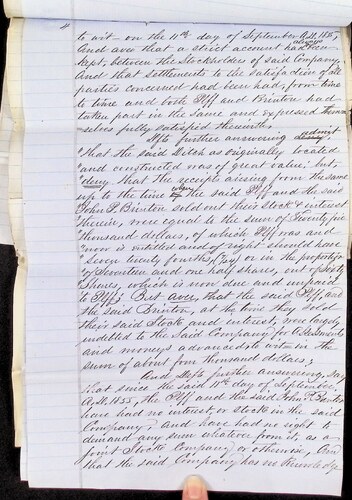 to wit - on the 11th day of September A.D. 1855,
And aver that a strict account had always been
kept, between the Stockholders of said Company,
And that settlements to the satisfaction of all
parties concerned had been had, from time
to time and both Plff and Brinton had
taken part in the same and expressed them-
selves fully satisfied therewith.
Defts further answering admit
"that the said Ditch as originally located
and constructed was of great value" but
"deny that the receipts arising from the same
up to the time when the said Plff and the said
John P. Brinton sold out their stock & interest
therein, were equal to the sum of Seventy five
thousand dollars, of which Plff was and
"now is entitled and of right should have
"seven twenty fourths, (7/24) or in the proportion
of Seventeen and one half shares, out of Sixty
Shares, which is now due and unpaid
to Plff; But aver, that the said Plff, and
the said Brinton, at the time they sold
their said Stock and interest, were largely
indebted to the said Company for assessments
and moneys advanced to wit in the
sum of about four thousand dollars;
And Defts further answering, say
that since the said 11th day of September,
A.D. 1855, the Plff and the said John P. Brinton
have had no interest or stock in the said
Company, and have had no right to
demand any sum whatever from it, as a
Joint Stock Company or otherwise, And
that the said Company has no knowledge